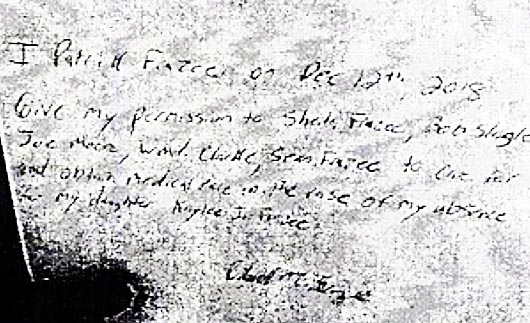 I Patrick Frazee on Dec 12th, 2018
Give my permission to Sheila Frazee, Bob Slagle
Joe Moore, Sean Frazee to care for
and obtain medical care in the case of my absence
for my daughter Kaylee J. Frazee.